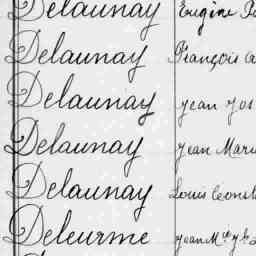 Delaunay Eugène
Delaunay François
Delaunay Jean Jos
Delaunay Jean Marie
Delaunay Louis
Deleurme Jean Mie